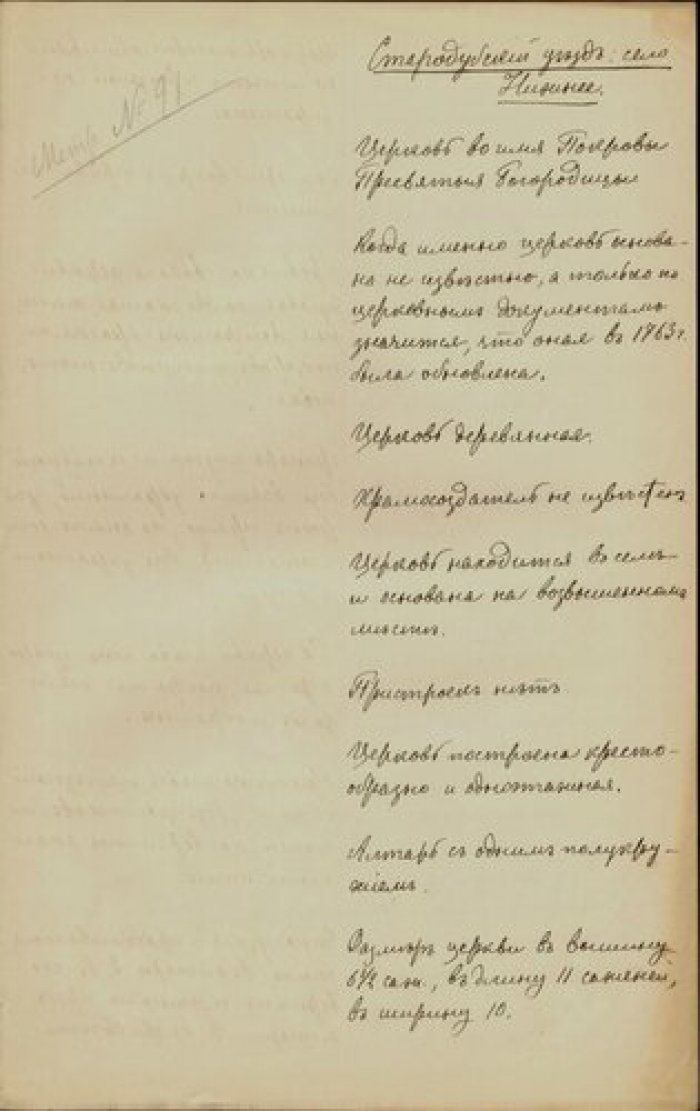 Метр № 91
Стародубскій уѣздъ: село
Нижнее.
Церковь во имя Покровы
Пресвятыя Богородицы
Когда именно церковь основа-
на не извѣстно, а только по
церковнымъ документамъ
значится, что оная въ 1763 г.
была обновлена.
Церковь деревянная.
Храмоздатель не извѣстенъ
Церковь находится въ селѣ
и основана на возвышенномъ
мѣстѣ.
Пристроекъ нѣтъ.
Церковь построена кресто-
образно и одноэтажная.
Алтарь съ однимъ полукру-
жіемъ.
Размѣръ церкви въ вышину
6 1/2 саж., въ длину 11 саженей,
въ ширину 10.